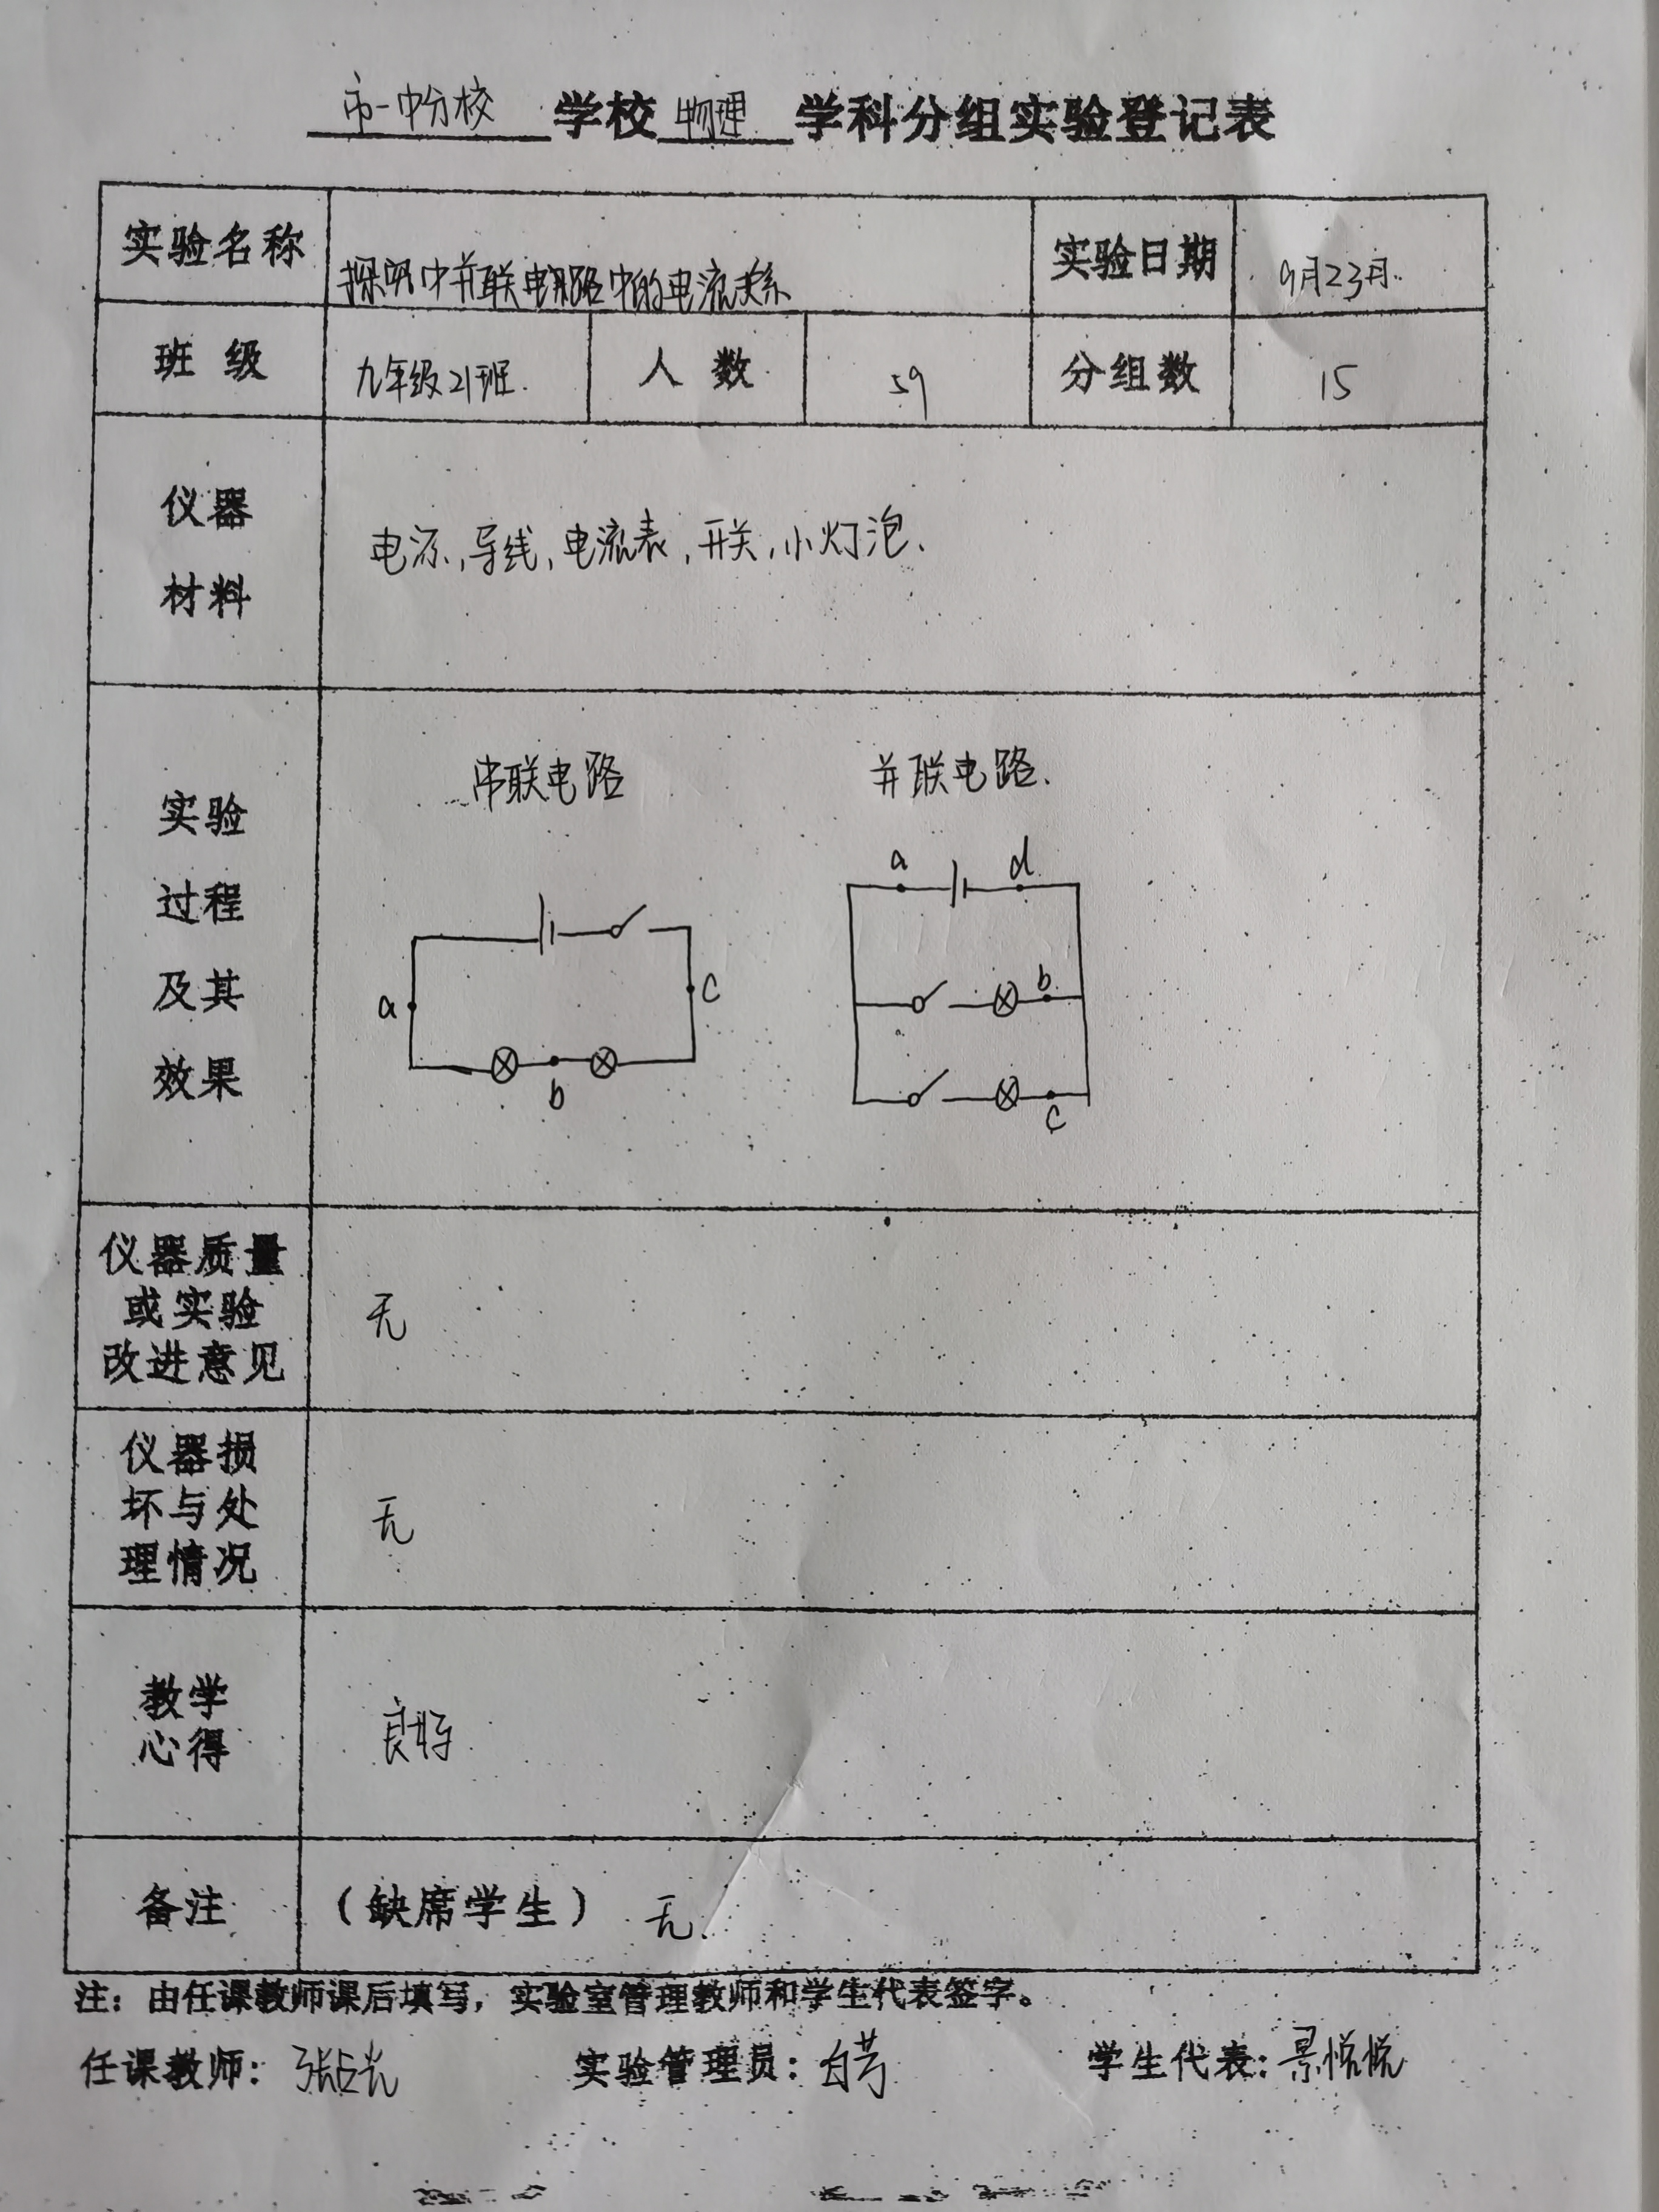 市一中分校 学校 物理 学科分组实验登记表
实验名称 探究串并联电路中的电流关系 实验日期 9月23日.
班级 九年级21班. 人数 59 分组数 15
仪器
材料
电源,导线,电流表,开关,小灯泡、
实验
过程
及其
效果
串联电路 并联电路.
a d
a c b
b c
仪器质量
或实验
改进意见
无
仪器损
坏与处
理情况
无
教学
心得
良好
备注 (缺席学生) 无.
注：由任课教师课后填写，实验室管理教师和学生代表签字。
任课教师： 实验管理员： 学生代表：景悦悦